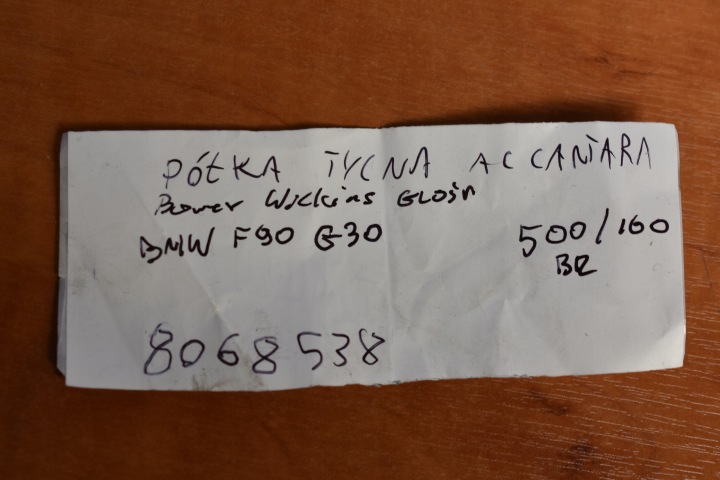 PÓŁKA TYLNA ALCANTARA
Bower Wilkins GŁOŚN
BMW F90 G30 500/160
BR
8068538